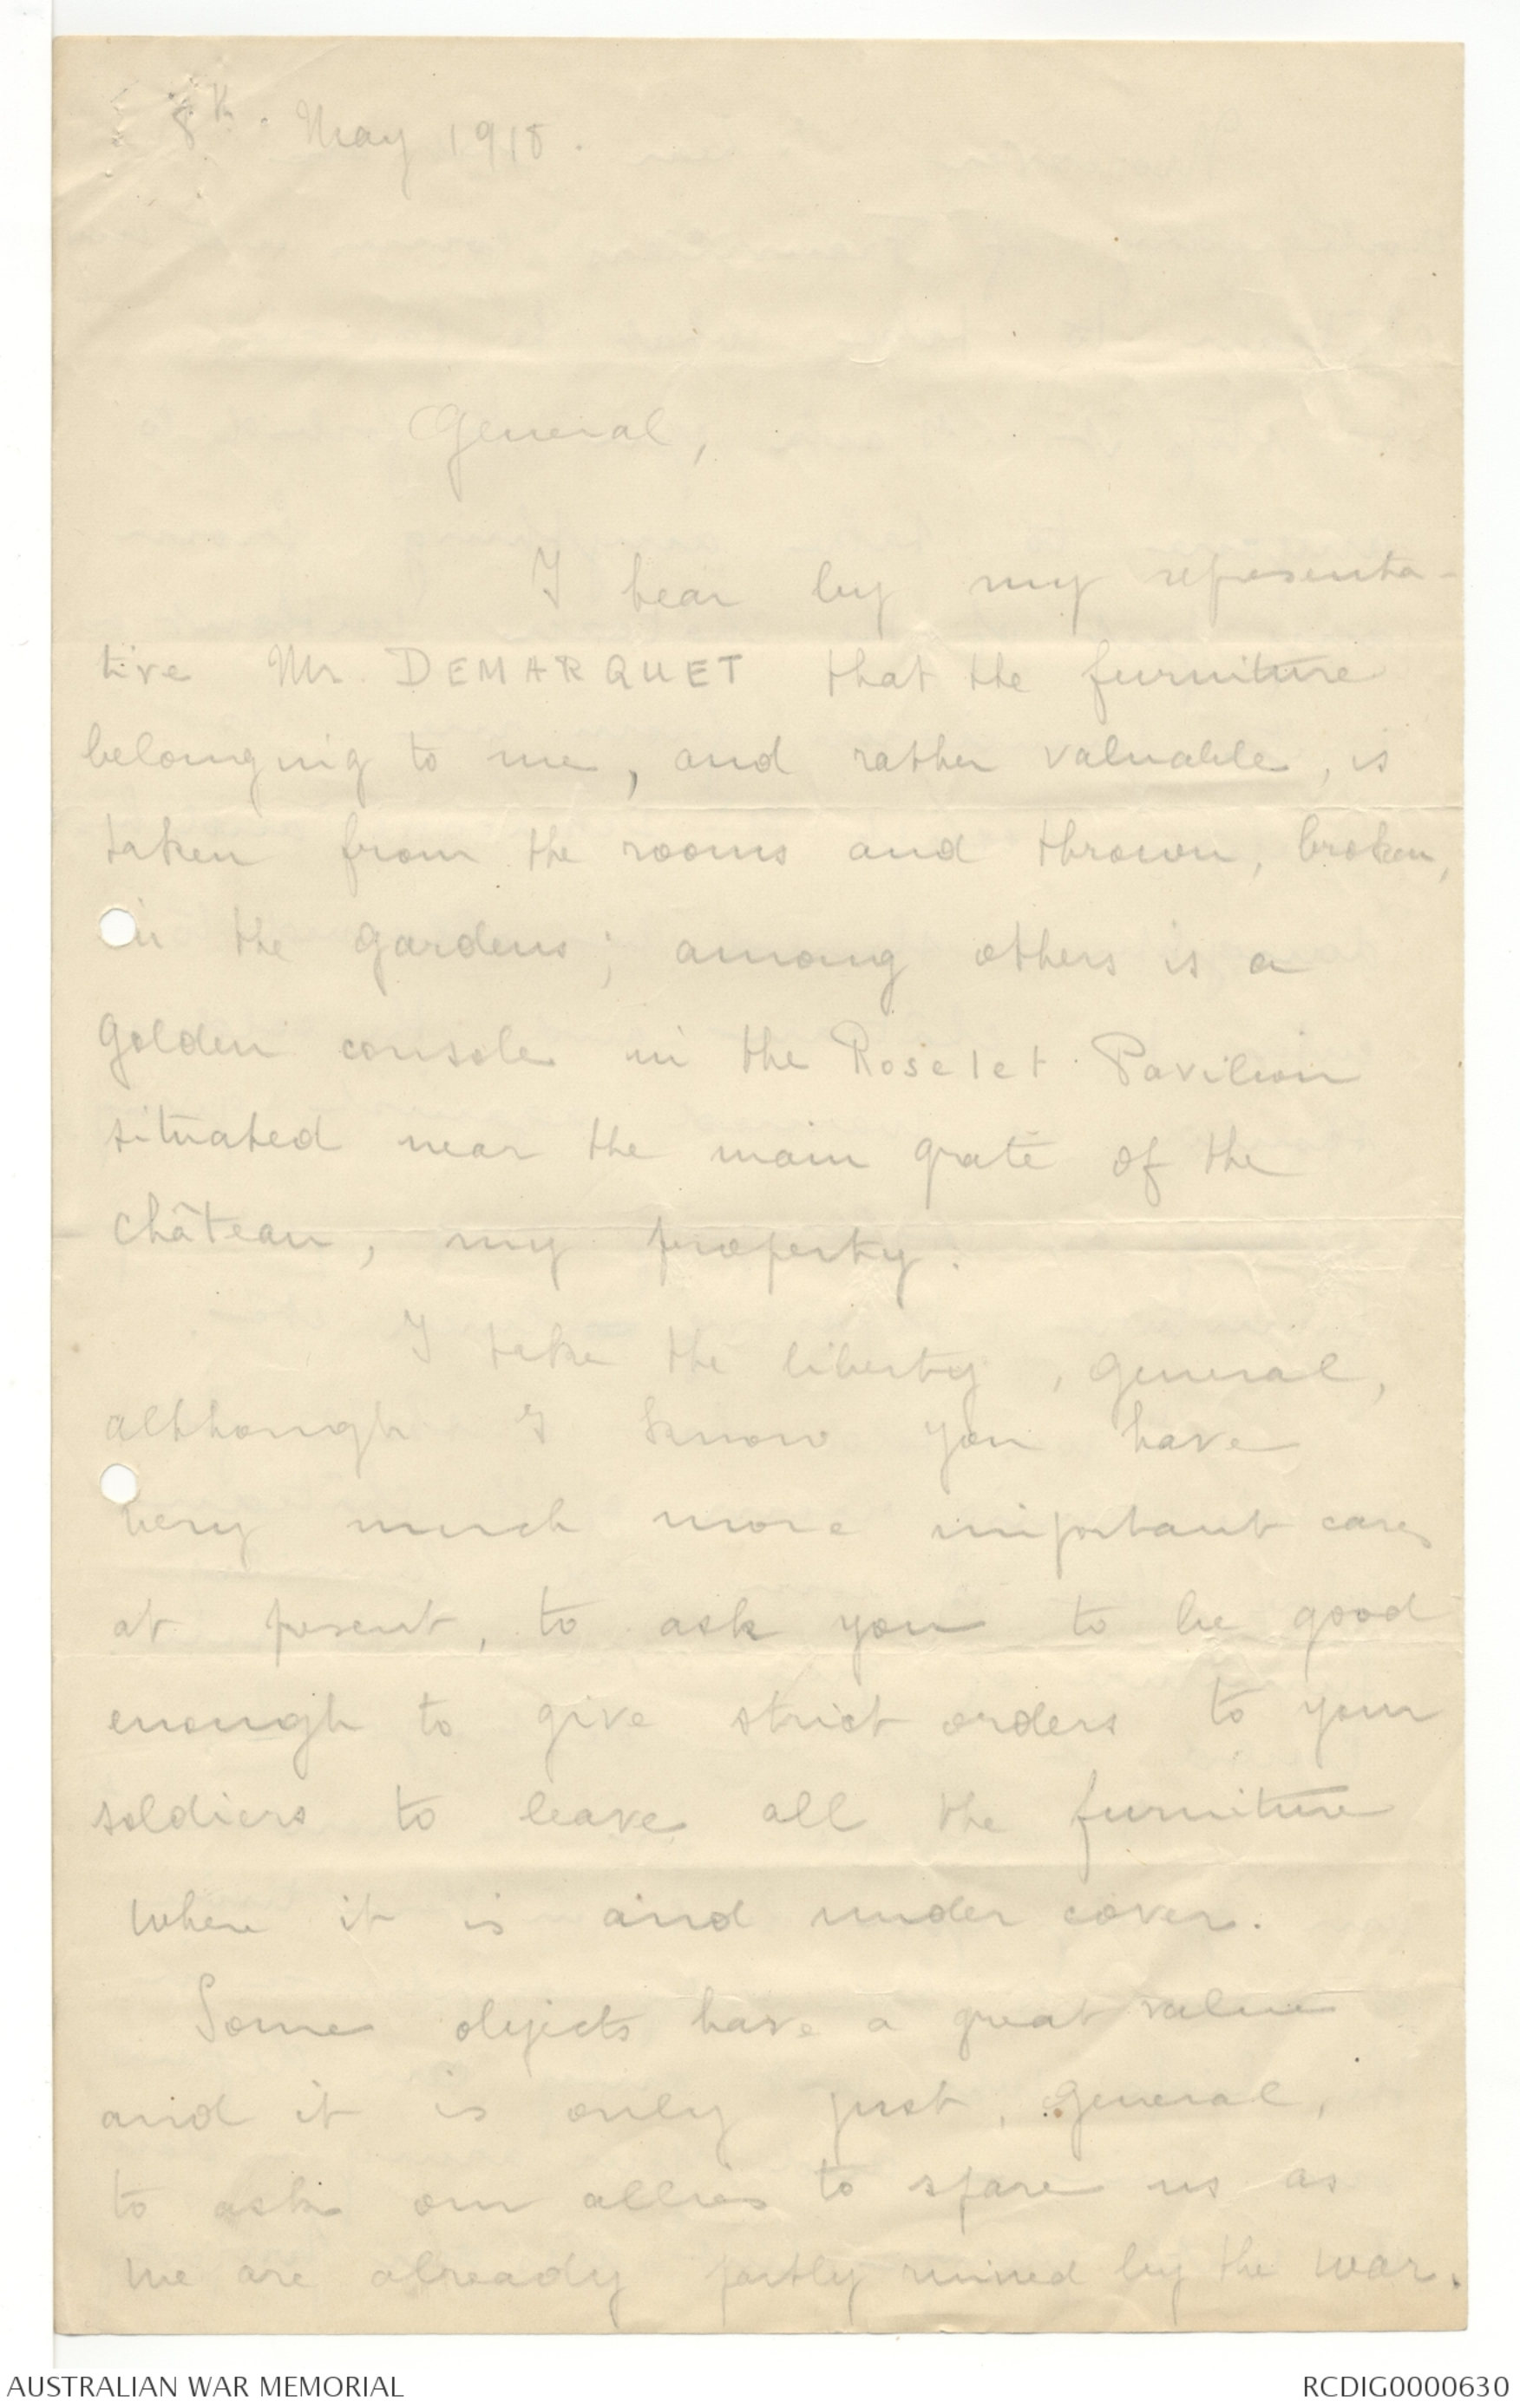 8th. May 1918.
General,
I hear by my representa-
tive Mr. DEMARQUET that the furniture
belonging to me, and rather valuable, is
taken from the rooms and thrown, broken,
in the gardens; among others is a
golden console in the Roselet Pavilion
situated near the main grate of the
château, my property.
I take the liberty, general,
although I know you have
very much more important cares
at present, to ask you to be good
enough to give strict orders to your
soldiers to leave all the furniture
where it is and under cover.
Some objects have a great value
and it is only just, general,
to ask our allies to spare us as
we are already partly ruined by the war.
AUSTRALIAN WAR MEMORIAL
RCDIG0000630